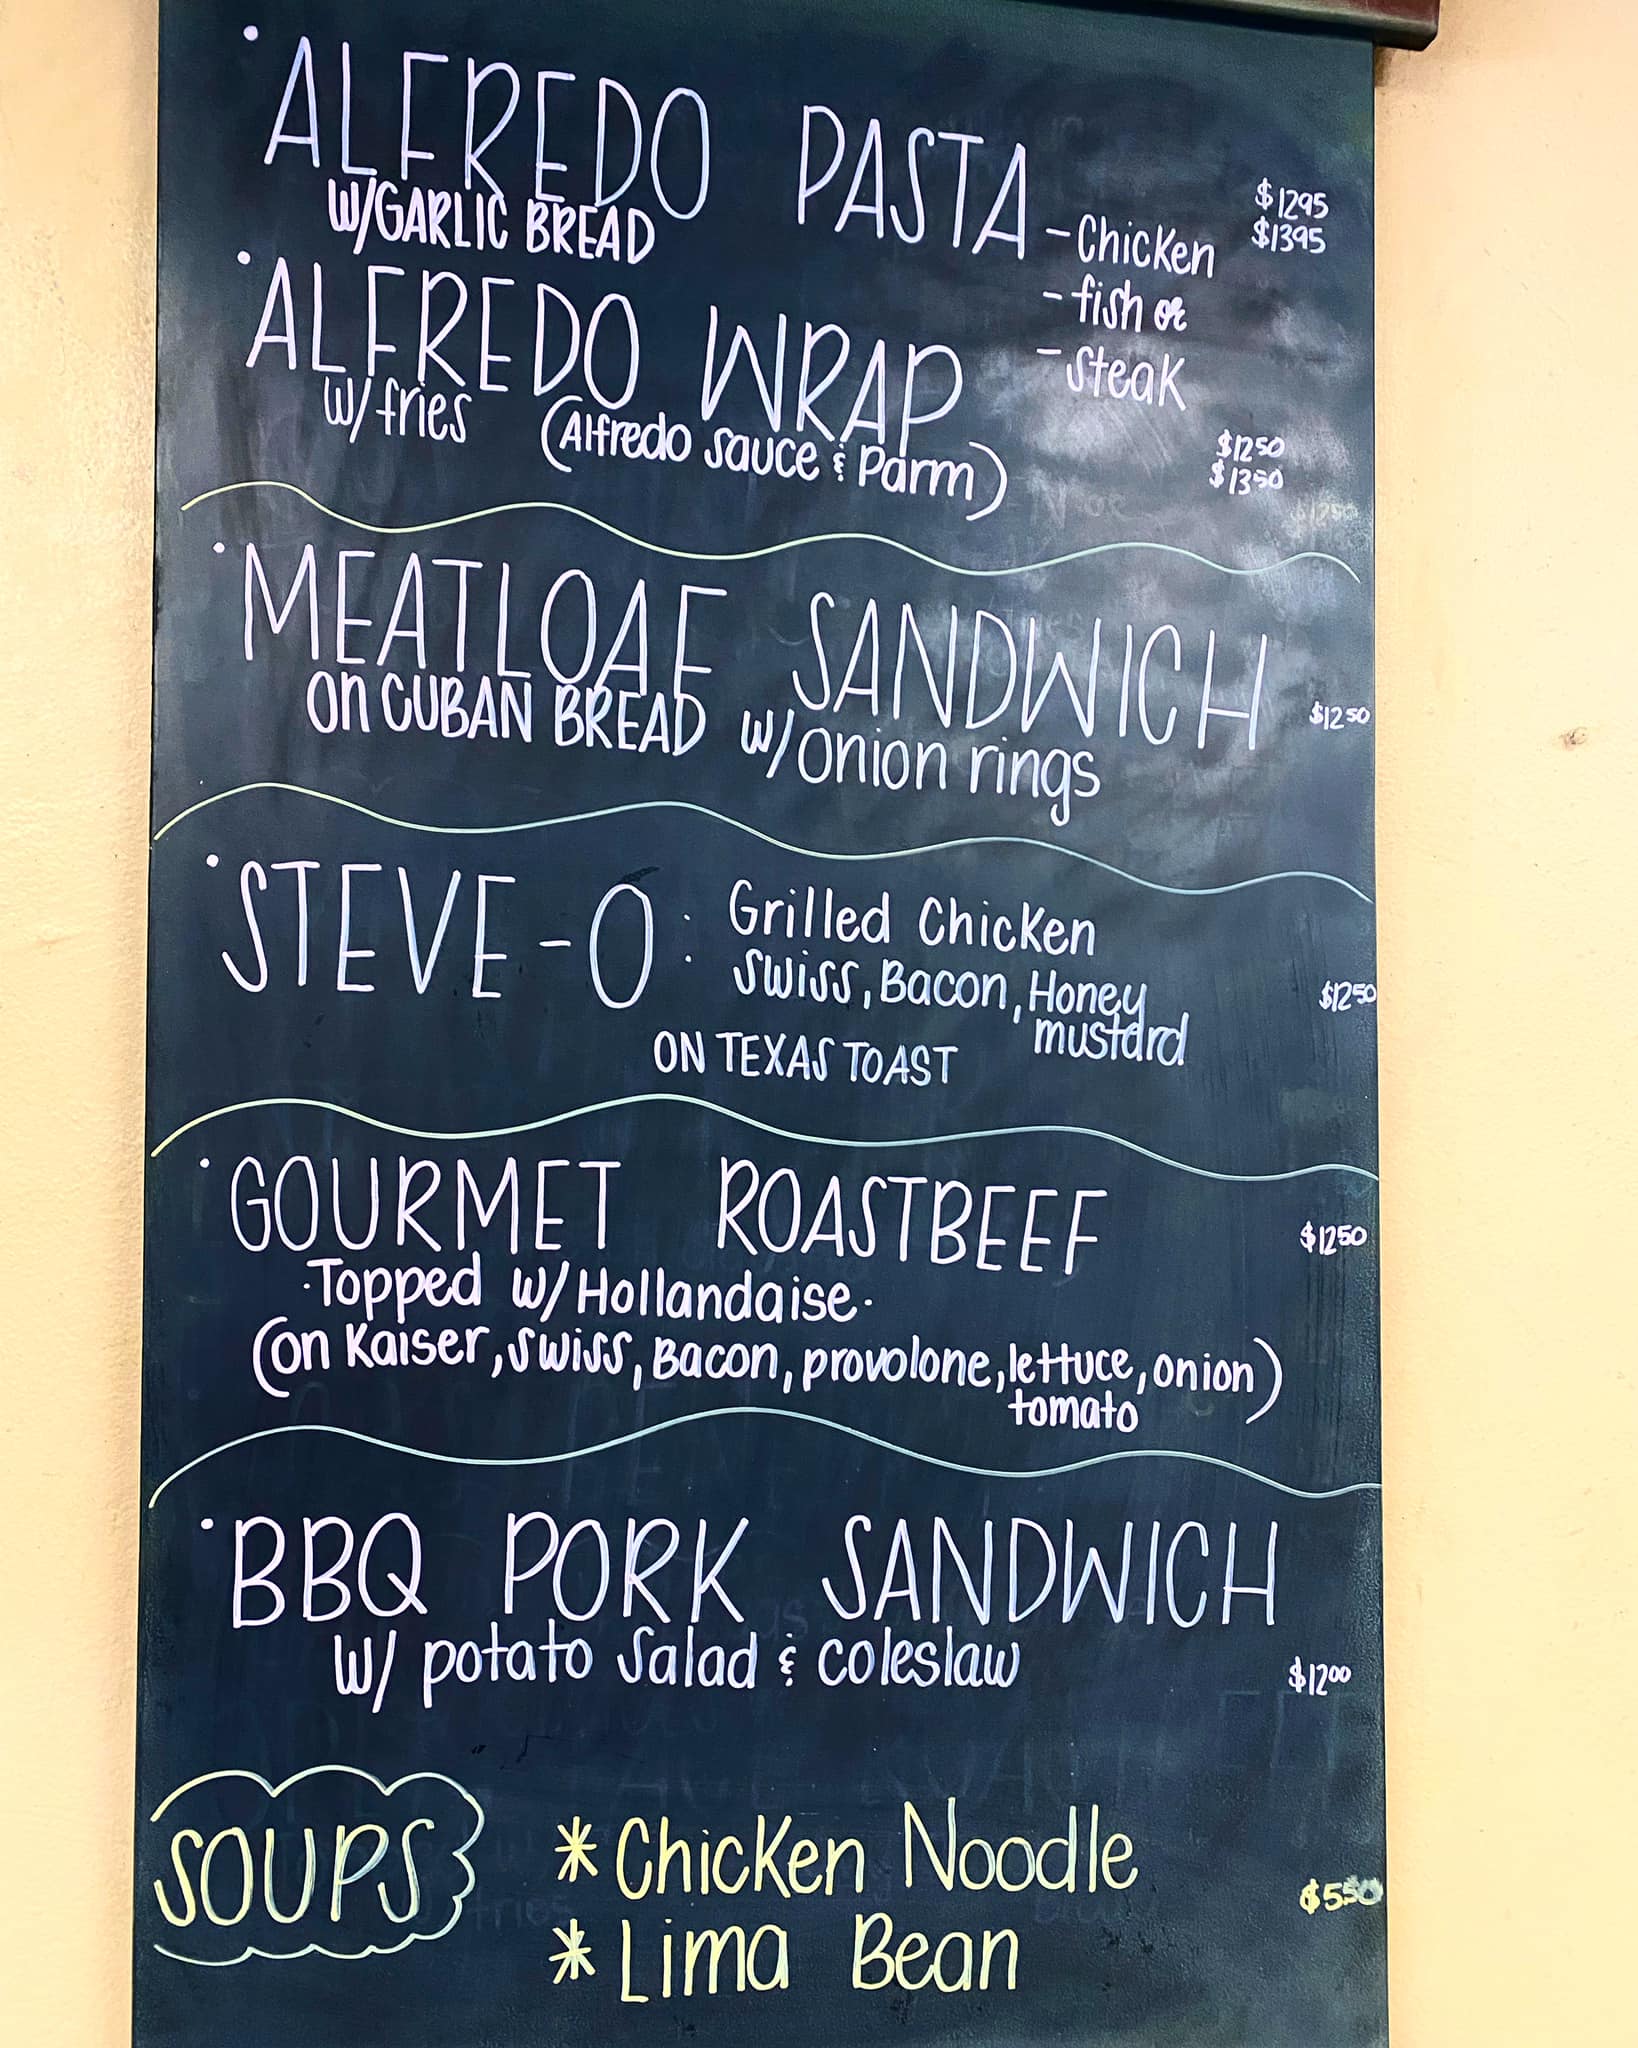 • ALFREDO PASTA
w/GARLIC BREAD
- Chicken
- fish or
- Steak
$1295
$1395
• ALFREDO WRAP
w/ fries (Alfredo sauce & Parm)
$1250
$1350
• MEATLOAF SANDWICH
on CUBAN BREAD w/onion rings $1250
• STEVE-O: Grilled Chicken
Swiss, Bacon, Honey
mustard
$1250
ON TEXAS TOAST
• GOURMET ROASTBEEF $1250
·Topped w/Hollandaise·
(on Kaiser, Swiss, Bacon, provolone, lettuce, onion)
tomato
• BBQ PORK SANDWICH
w/ potato Salad & coleslaw $1200
SOUPS
* Chicken Noodle
* Lima Bean
$550